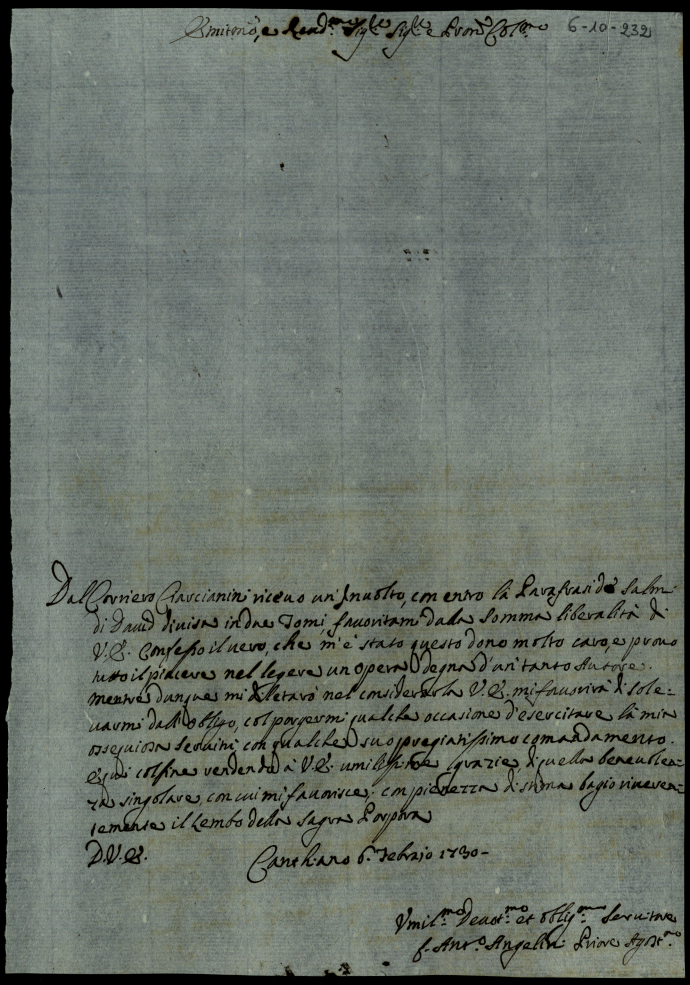 Emin.mo, e Rev.d.mo Sig.re Sig.re e Pron.e Col.mo 6-10-232
Dal Corriero Ciarcianini ricevo un' Involto, con entro la Parafrasi de Salmi
di David divisa in due Tomi, favoritami dala somma liberalità di
V.E. Confesso il vero, che m'è stato questo dono molto caro, e provo
tutto il piacere nel legere un opera degna d'un tanto Autore.
mentre dunque mi diletarò nel considerarla V.E. mi favorirà di sole-
varmi dall'obligo, col porgermi qualche occasione d'esercitare la mia
ossequiosa servitù con qualche suo pregiatissimo comandamento.
e qui col fine rendendo à V.E. umilissime grazie, di quella benevolen-
za singolare, con cui mi favorisce: con pienezza di stima bagio riveren-
temente il Lembo della Sagra Porpora
D.V.E. Canthiano 6. Febrajo 1730-
Vmil.mo Devot.mo et oblig.mo Servitore
f. Ant.o Angelini Priore Agost.no